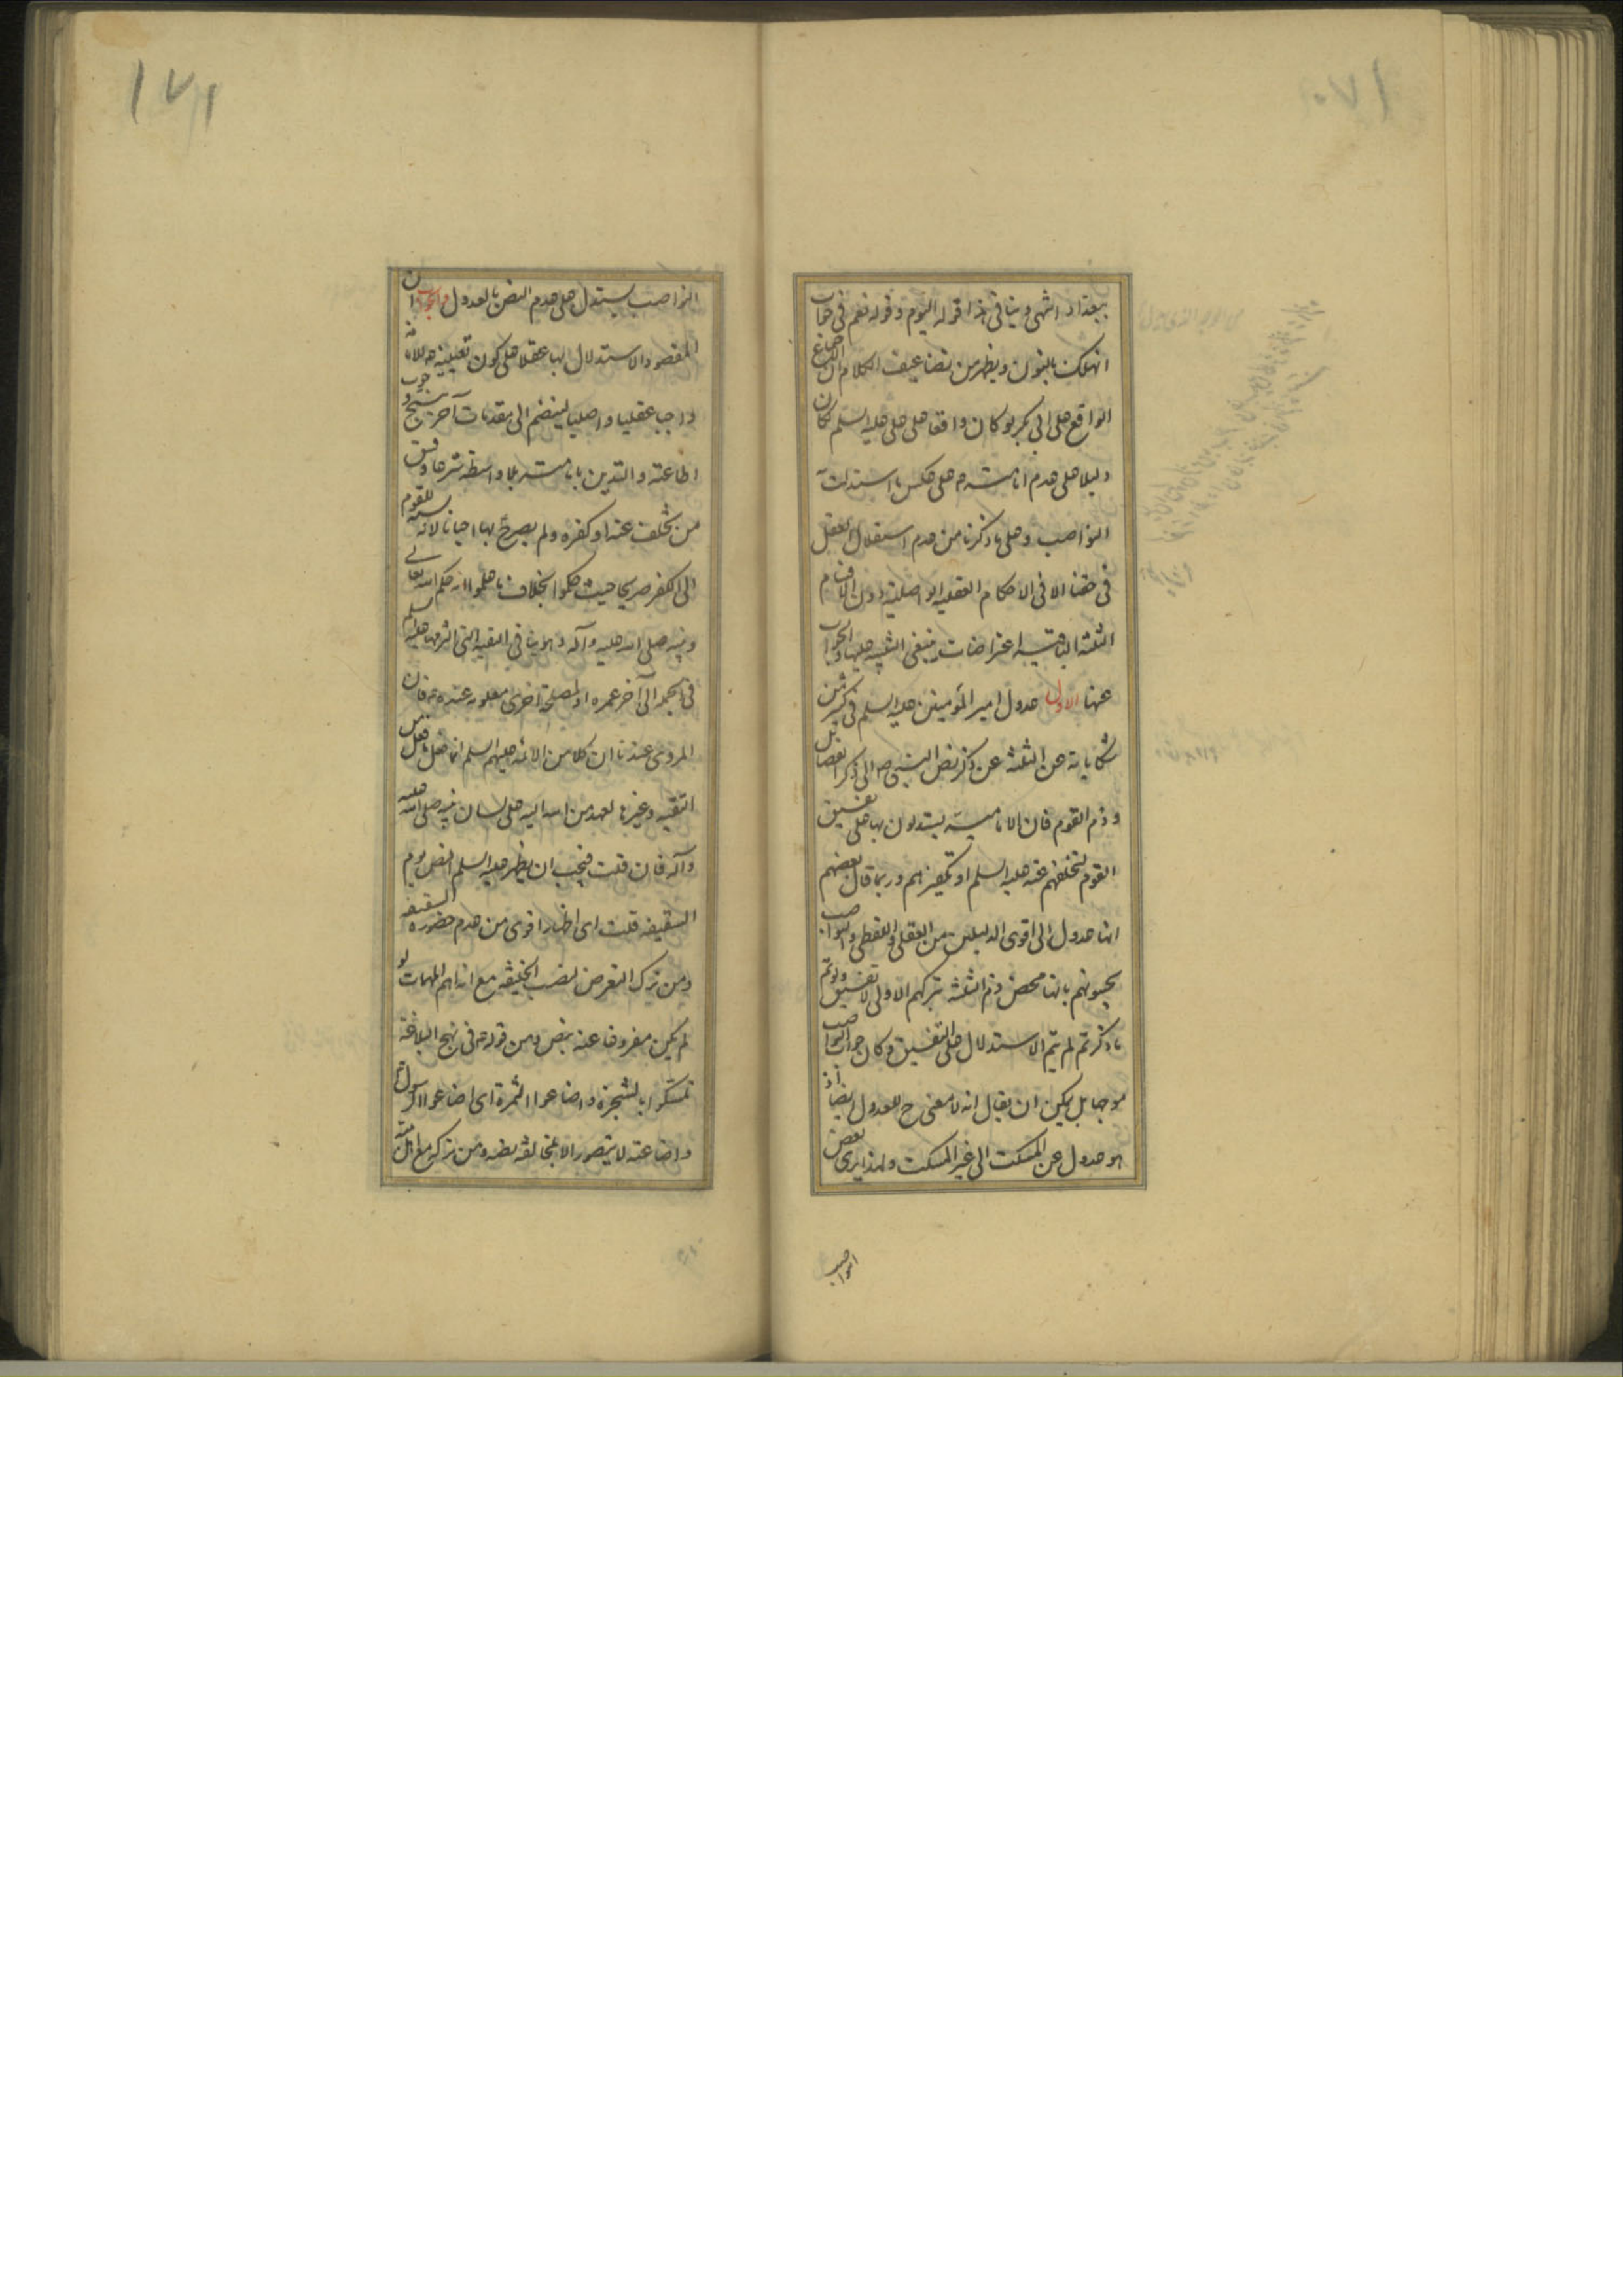 ١٧٠
ببغداد انتهى وينافى هذا قوله اليوم وقوله نعم فى جواب
انهلك بالنون ويظهر من تضاعيف الكلام ان الاجماع
الواقع على ابى بكر لو كان واقعا على على عليه السلم لكان
دليلا على عدم امامته م على عكس ما استدلت
النواصب وعلى ما ذكرنا من عدم استقلال العقل
فى حقنا الا فى الاحكام العقلية الواصلية دون
الثلثة الباقية اعتراضات ينبغى التنبيه عليها والجواب
عنها الاول عدول امير المؤمنين عليه السلم فى كثير من
شكاياته عن الثلثة عن ذكر نص النبى ص الى ذكر الفضائل
وذم القوم فان الامامية يستدلون بها على تفسيق
القوم لتخلفهم عنه عليه السلم او تكفيرهم وربما قال بعضهم
انها عدول الى اقوى الدليلين من العقلى واللفظى والنواصب
يجيبونهم بانها محض ذم الثلثة بتركهم الاولى لا تفسيق ولو تم
ما ذكرتم لم يتم الاستدلال على التفسيق وكان جواب النواصب
موجها بل يمكن ان يقال انه لا معنى ح للعدول ايضا اذ
هو عدول عن المسكت الى غير المسكت ولهذا يرى بعض
النواصب
١٧١
النواصب يستدل على عدم النص بالعدول والجواب ان
المقصود الاستدلال بها عقلا على كون تعيينه م للامامة
واجبا عقليا واصليا لينضم الى مقدمات آخر ينتج وجوب
اطاعته والتدين بامامته بلا واسطة شرعا وفسق
من تخلف عنه او كفره ولم يصرح بها احيانا لانه نسبة للقوم
الى الكفر صريحا حيث حكموا بخلاف ما علموا انه حكم الله تعالى
ونبيه صلى الله عليه وآله وهو ينافى التقية التى التزمها عليه السلم
فى الجملة الى آخر عمره او لمصلحة اخرى معلومة عنده م فان
المروى عندنا ان كلا من الائمة عليهم السلم انما فعل ما فعل من
التقية وغيرها لعهد من الله اليه على لسان نبيه صلى الله عليه
وآله فان قلت فيجب ان يظهر عليه السلم النص يوم
السقيفة قلت اى اظهار اقوى من عدم حضوره السقيفة
ومن ترك التعرض لنصب الخليفة مع انه اهم المهمات لو
لم يكن مفروغا عنه بنص ومن قوله م فى نهج البلاغة
تمسكوا بالشجرة واضاعوا الثمرة اى اضاعوا الرسول
واضاعته لا يتصور الا بمخالفة نصه ومن تركه مع